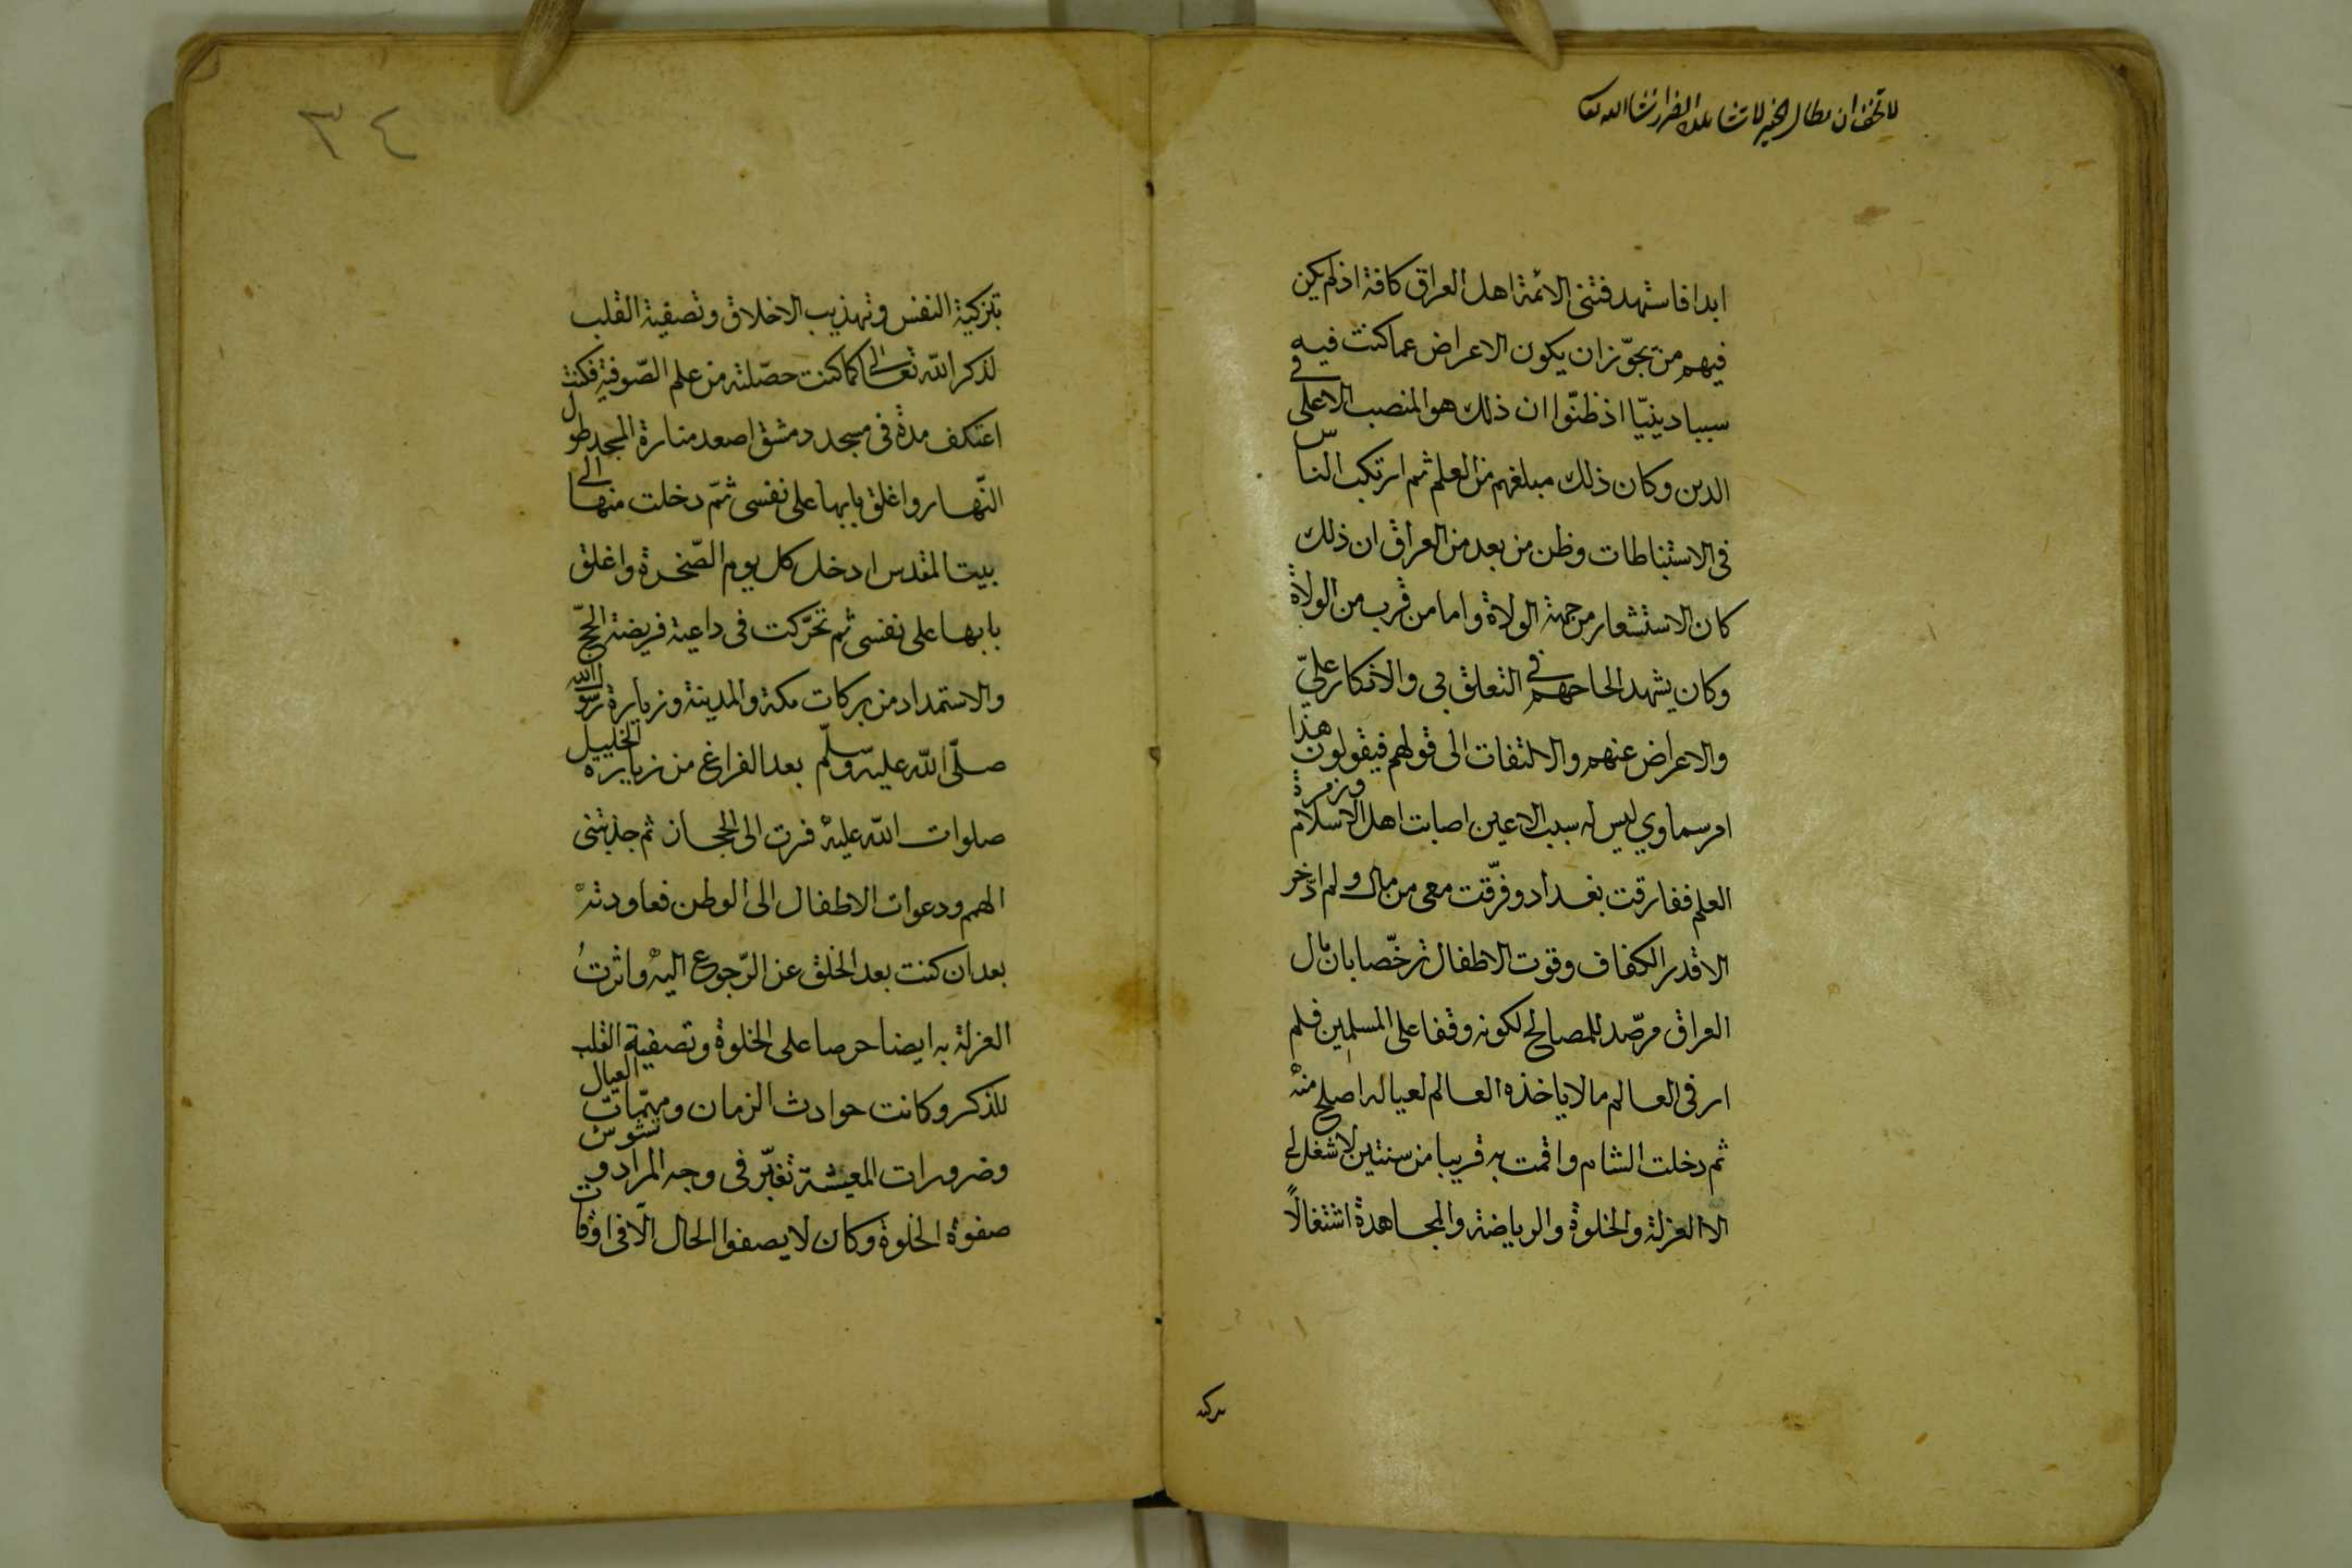 لا تخف ان مطال الخير لا تشا الضرر انشا الله تعا
ابدا فاستهد فتنى الائمة اهل العراق كافة اذ لم يكن
فيهم من يجوّز ان يكون الاعراض عما كنت فيه
سببا دينيّا اذ ظنّوا ان ذلك هو المنصب الاعلى فى
الدين وكان ذلك مبلغهم من العلم ثم ارتكب الناس
فى الاستنباطات وظن من بعد من العراق ان ذلك
كان الاستشعار من جهة الولاة واما من قرب من الولاة
وكان يشهد الحاحهم فى التعلق بى والانكار علىّ
والاعراض عنهم والالتفات الى قولهم فيقولون هذا
امر سماوي ليس له سبب الا عين اصابت اهل الاسلام وزمرة
العلم ففارقت بغداد وفرّقت معى من مال ولم ادّخر
الا قدر الكفاف وقوت الاطفال ترخّصا بان مال
العراق مرصّد للمصالح لكونه وقفا على المسلمين فلم
ار فى العالم مالا ياخذه العالم لعياله اصلح منه
ثم دخلت الشام واقمت به قريبا من سنتين لا شغل لى
الا العزلة والخلوة والرياضة والمجاهدة اشتغالاً
بتزكية النفس وتهذيب الاخلاق وتصفية القلب
لذكر الله تعالى كما كنت حصّلته من علم الصّوفية فكنت
اعتكف مدة فى مسجد دمشق اصعد منارة المسجد طول
النّهار واغلق بابها على نفسى ثمّ دخلت منها الى
بيت المقدس ادخل كل يوم الصّخرة واغلق
بابها على نفسى ثم تحرّكت فى داعية فريضة الحجّ
والاستمداد من بركات مكة والمدينة وزيارة رسول الله
صلّى الله عليه وسلّم بعد الفراغ من زيارة الخليل
صلوات الله عليه فسرت الى الحجاز ثم جذبتنى
الهمم ودعوات الاطفال الى الوطن فعاودته
بعد ان كنت بعد الخلق عن الرّجوع اليه واثرتُ
العزلة به ايضا حرصا على الخلوة وتصفية القلب
للذكر وكانت حوادث الزمان ومهمّات العيال
وضرورات المعيشة تغيّر فى وجه المراد وتشوش
صفوة الخلوة وكان لا يصفوا الحال الّا فى اوقات